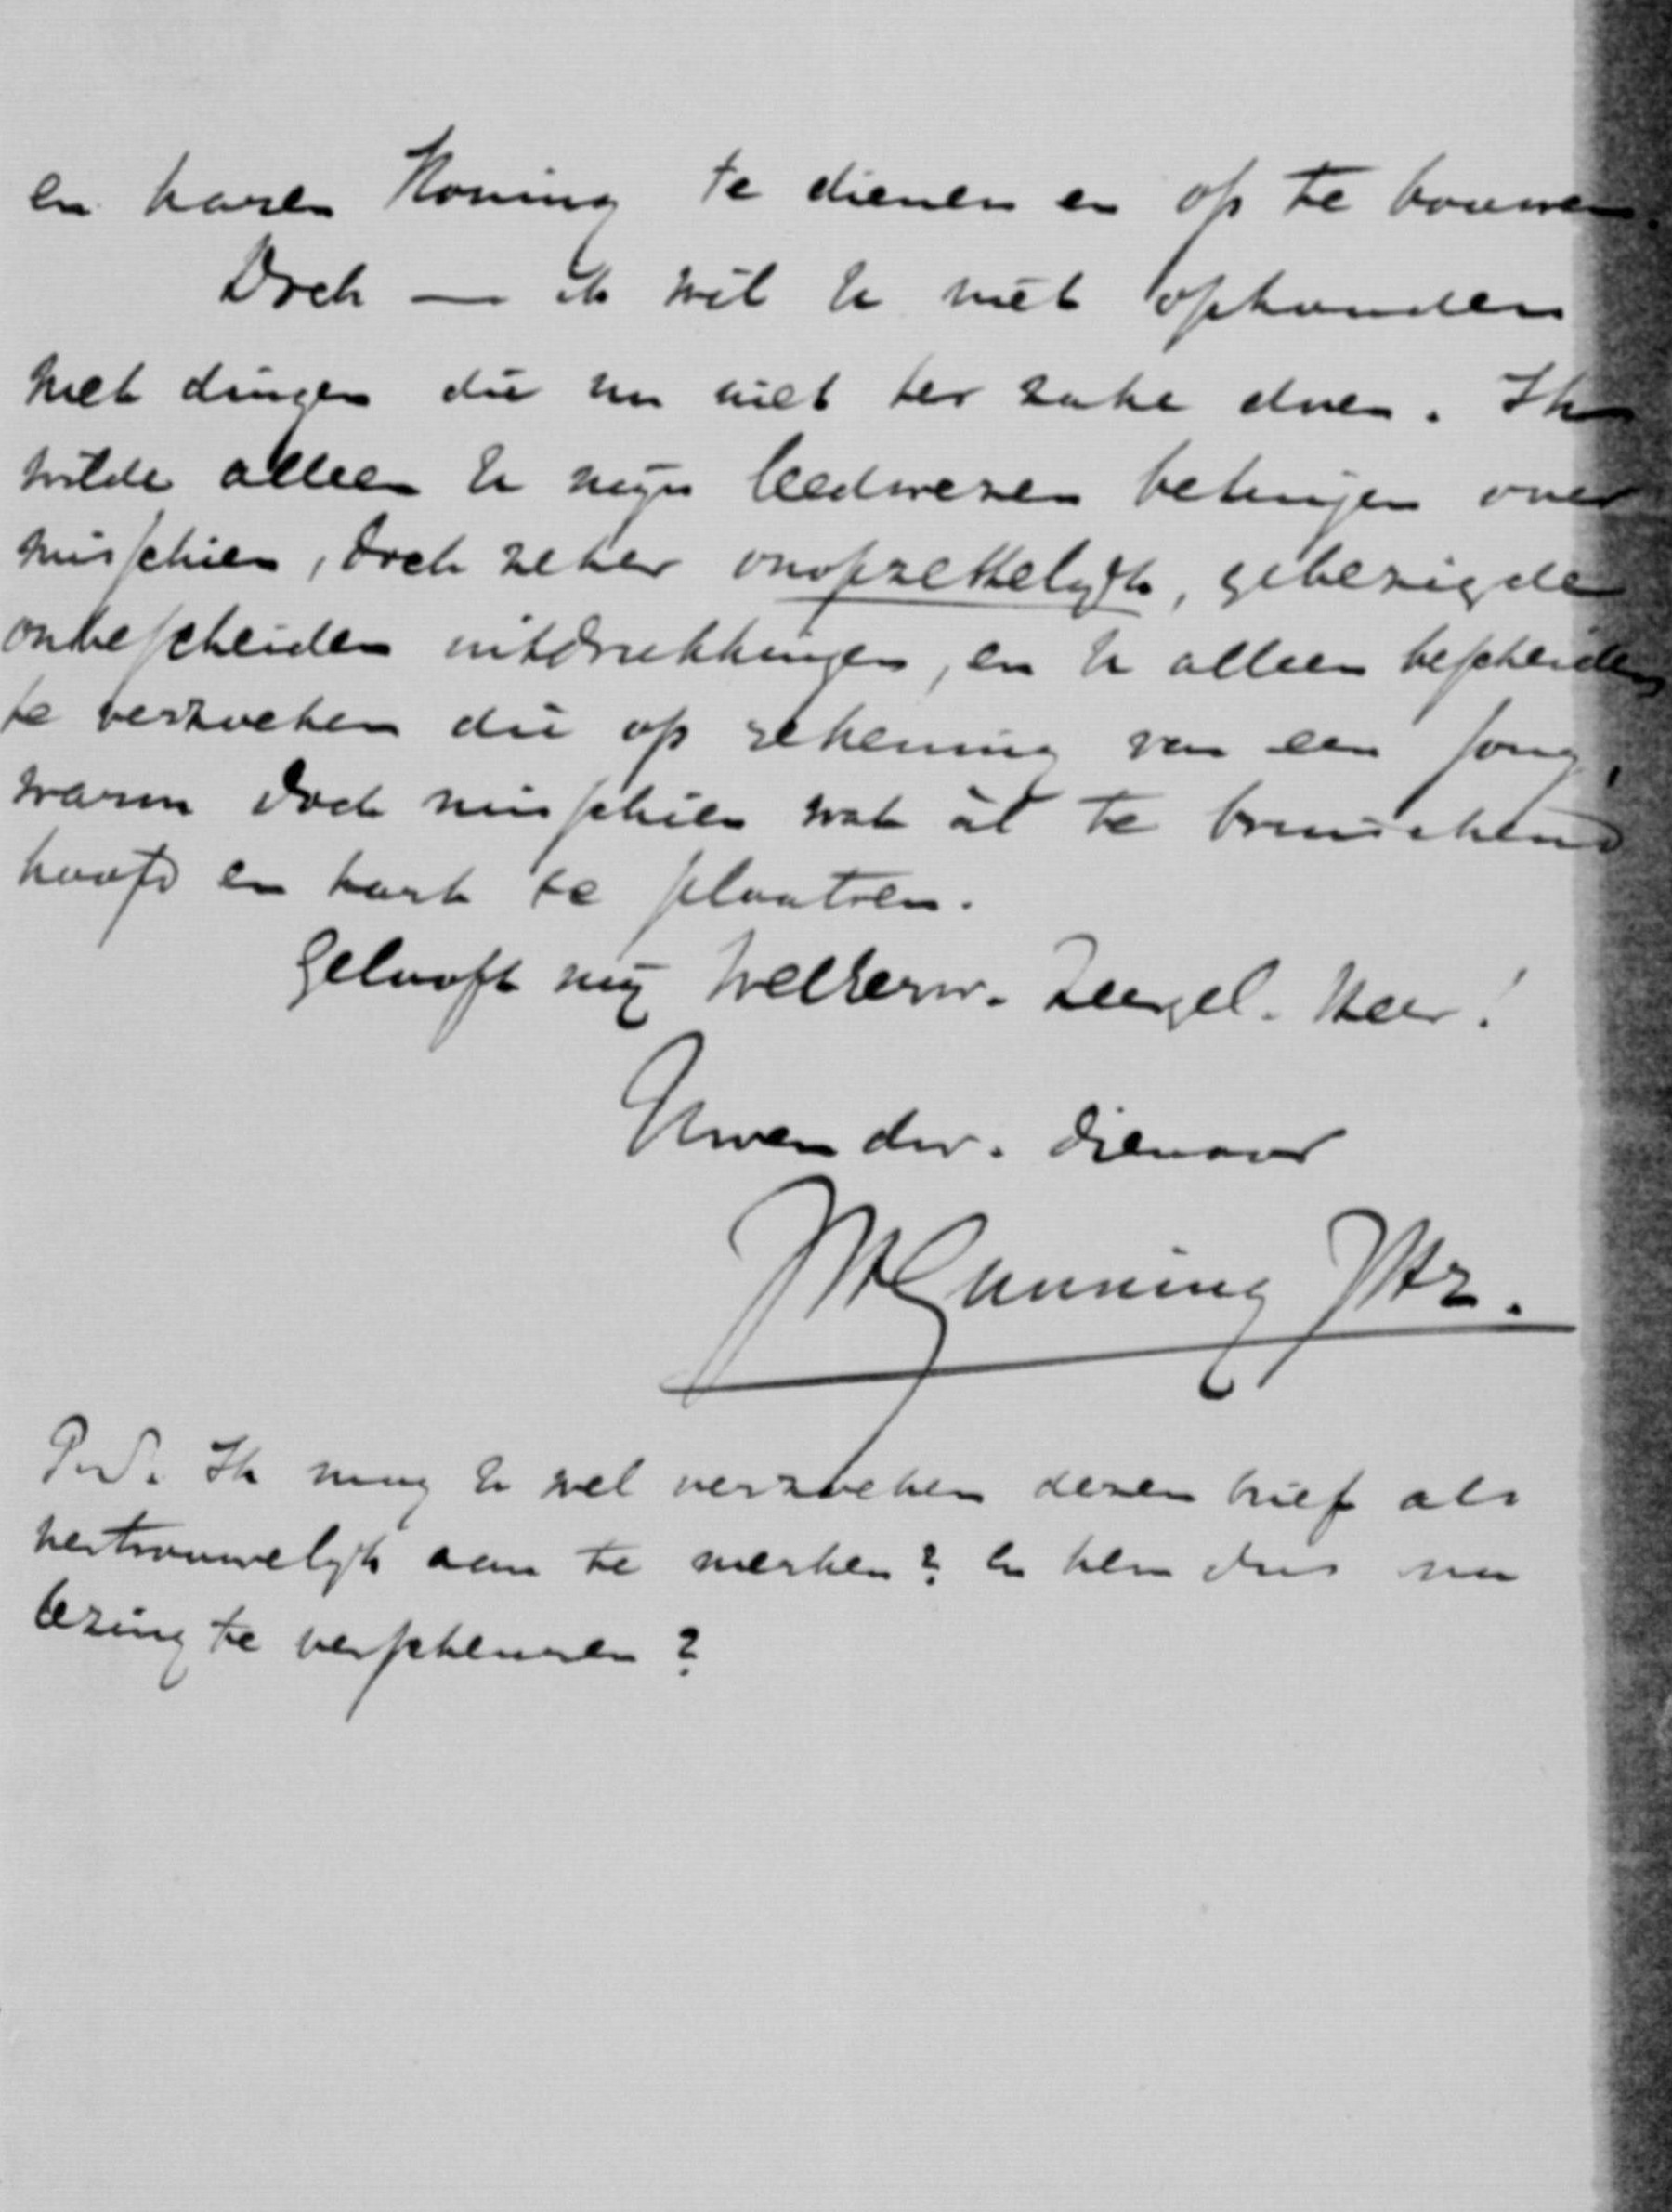 en haren Koning te dienen en op te bouwen.
Doch — ik wil U niet ophouden
met dingen die nu niet ter zake doen. Ik
wilde alleen U mijn leedwezen betuigen over
misschien, doch zeker onopzettelijk, gebezigde
onbescheiden uitdrukkingen, en U alleen bescheiden
te verzoeken die op rekening van een jong,
warm doch misschien wat ál te bruischend
hoofd en hart te plaatsen.
Gelooft mij WelEerw. Zeergel. Heer!
Uwen dw. dienaar
JHGunning JHz.
P.S. Ik mag U wel verzoeken dezen brief als
vertrouwelijk aan te merken? En hem dus na
lezing te verscheuren?